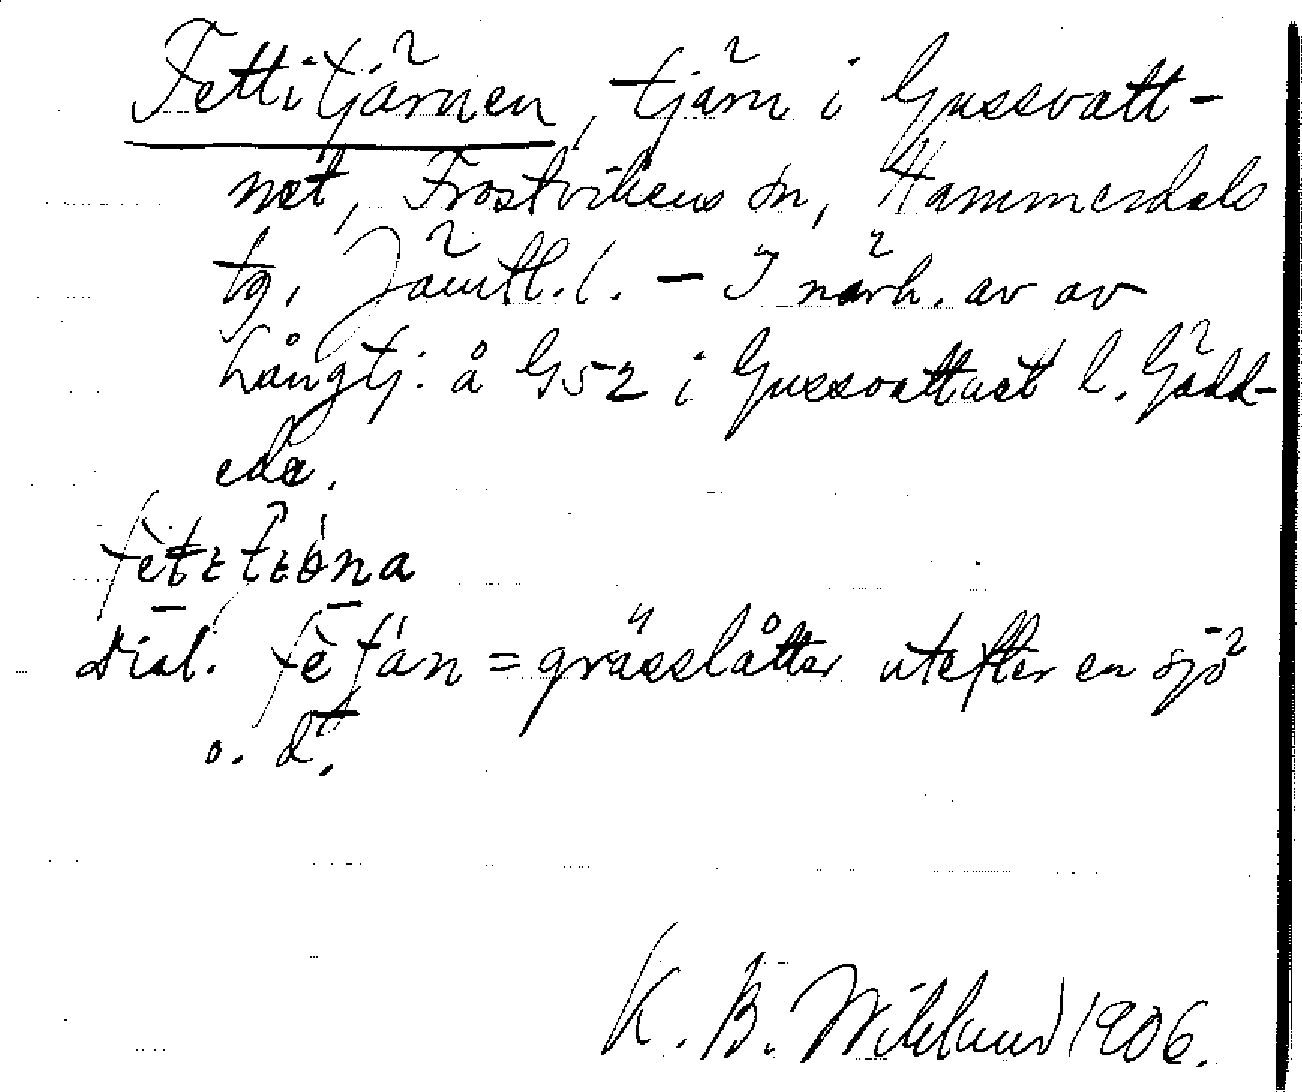 Fettitjärnen, tjärn i Gussvatt-
net, Frostvikens sn, Hammerdals
tg, Jämtl. l. - I närh. av av
Långtj. å G52 i Gussvattnet l. Gädd-
eda.
Dial. = grässlåtter utefter en sjö
o. d.
K. B. Wiklund 1906.